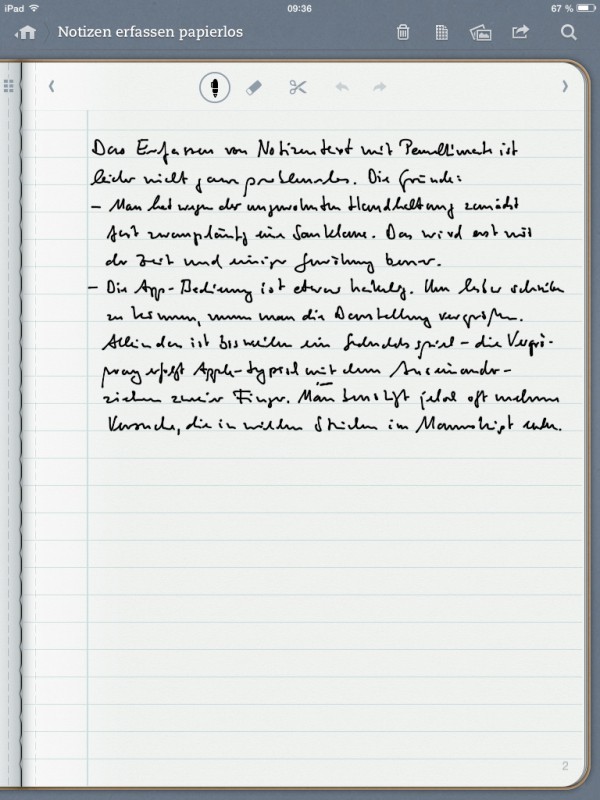 iPad 09:36 67 %
Notizen erfassen papierlos
Das Erfassen von Notizentext mit Penultimate ist
leider nicht ganz problemlos. Die Gründe:
- Man hat wegen der ungewohnten Handhaltung zunächst
fast zwangsläufig eine Sauklaue. Das wird erst mit
der Zeit und einiger Gewöhnung besser.
- Die App-Bedienung ist etwas hakelig. Um lesbar schreiben
zu können, muss man die Darstellung vergrößern.
Allein das ist bisweilen ein Geduldsspiel - die Vergrö-
serung erfolgt Apple-typisch mit dem Auseinander-
ziehen zweier Finger. Man benötigt jedoch oft mehrere
Versuche, die in wilden Strichen im Manuskript enden.
2